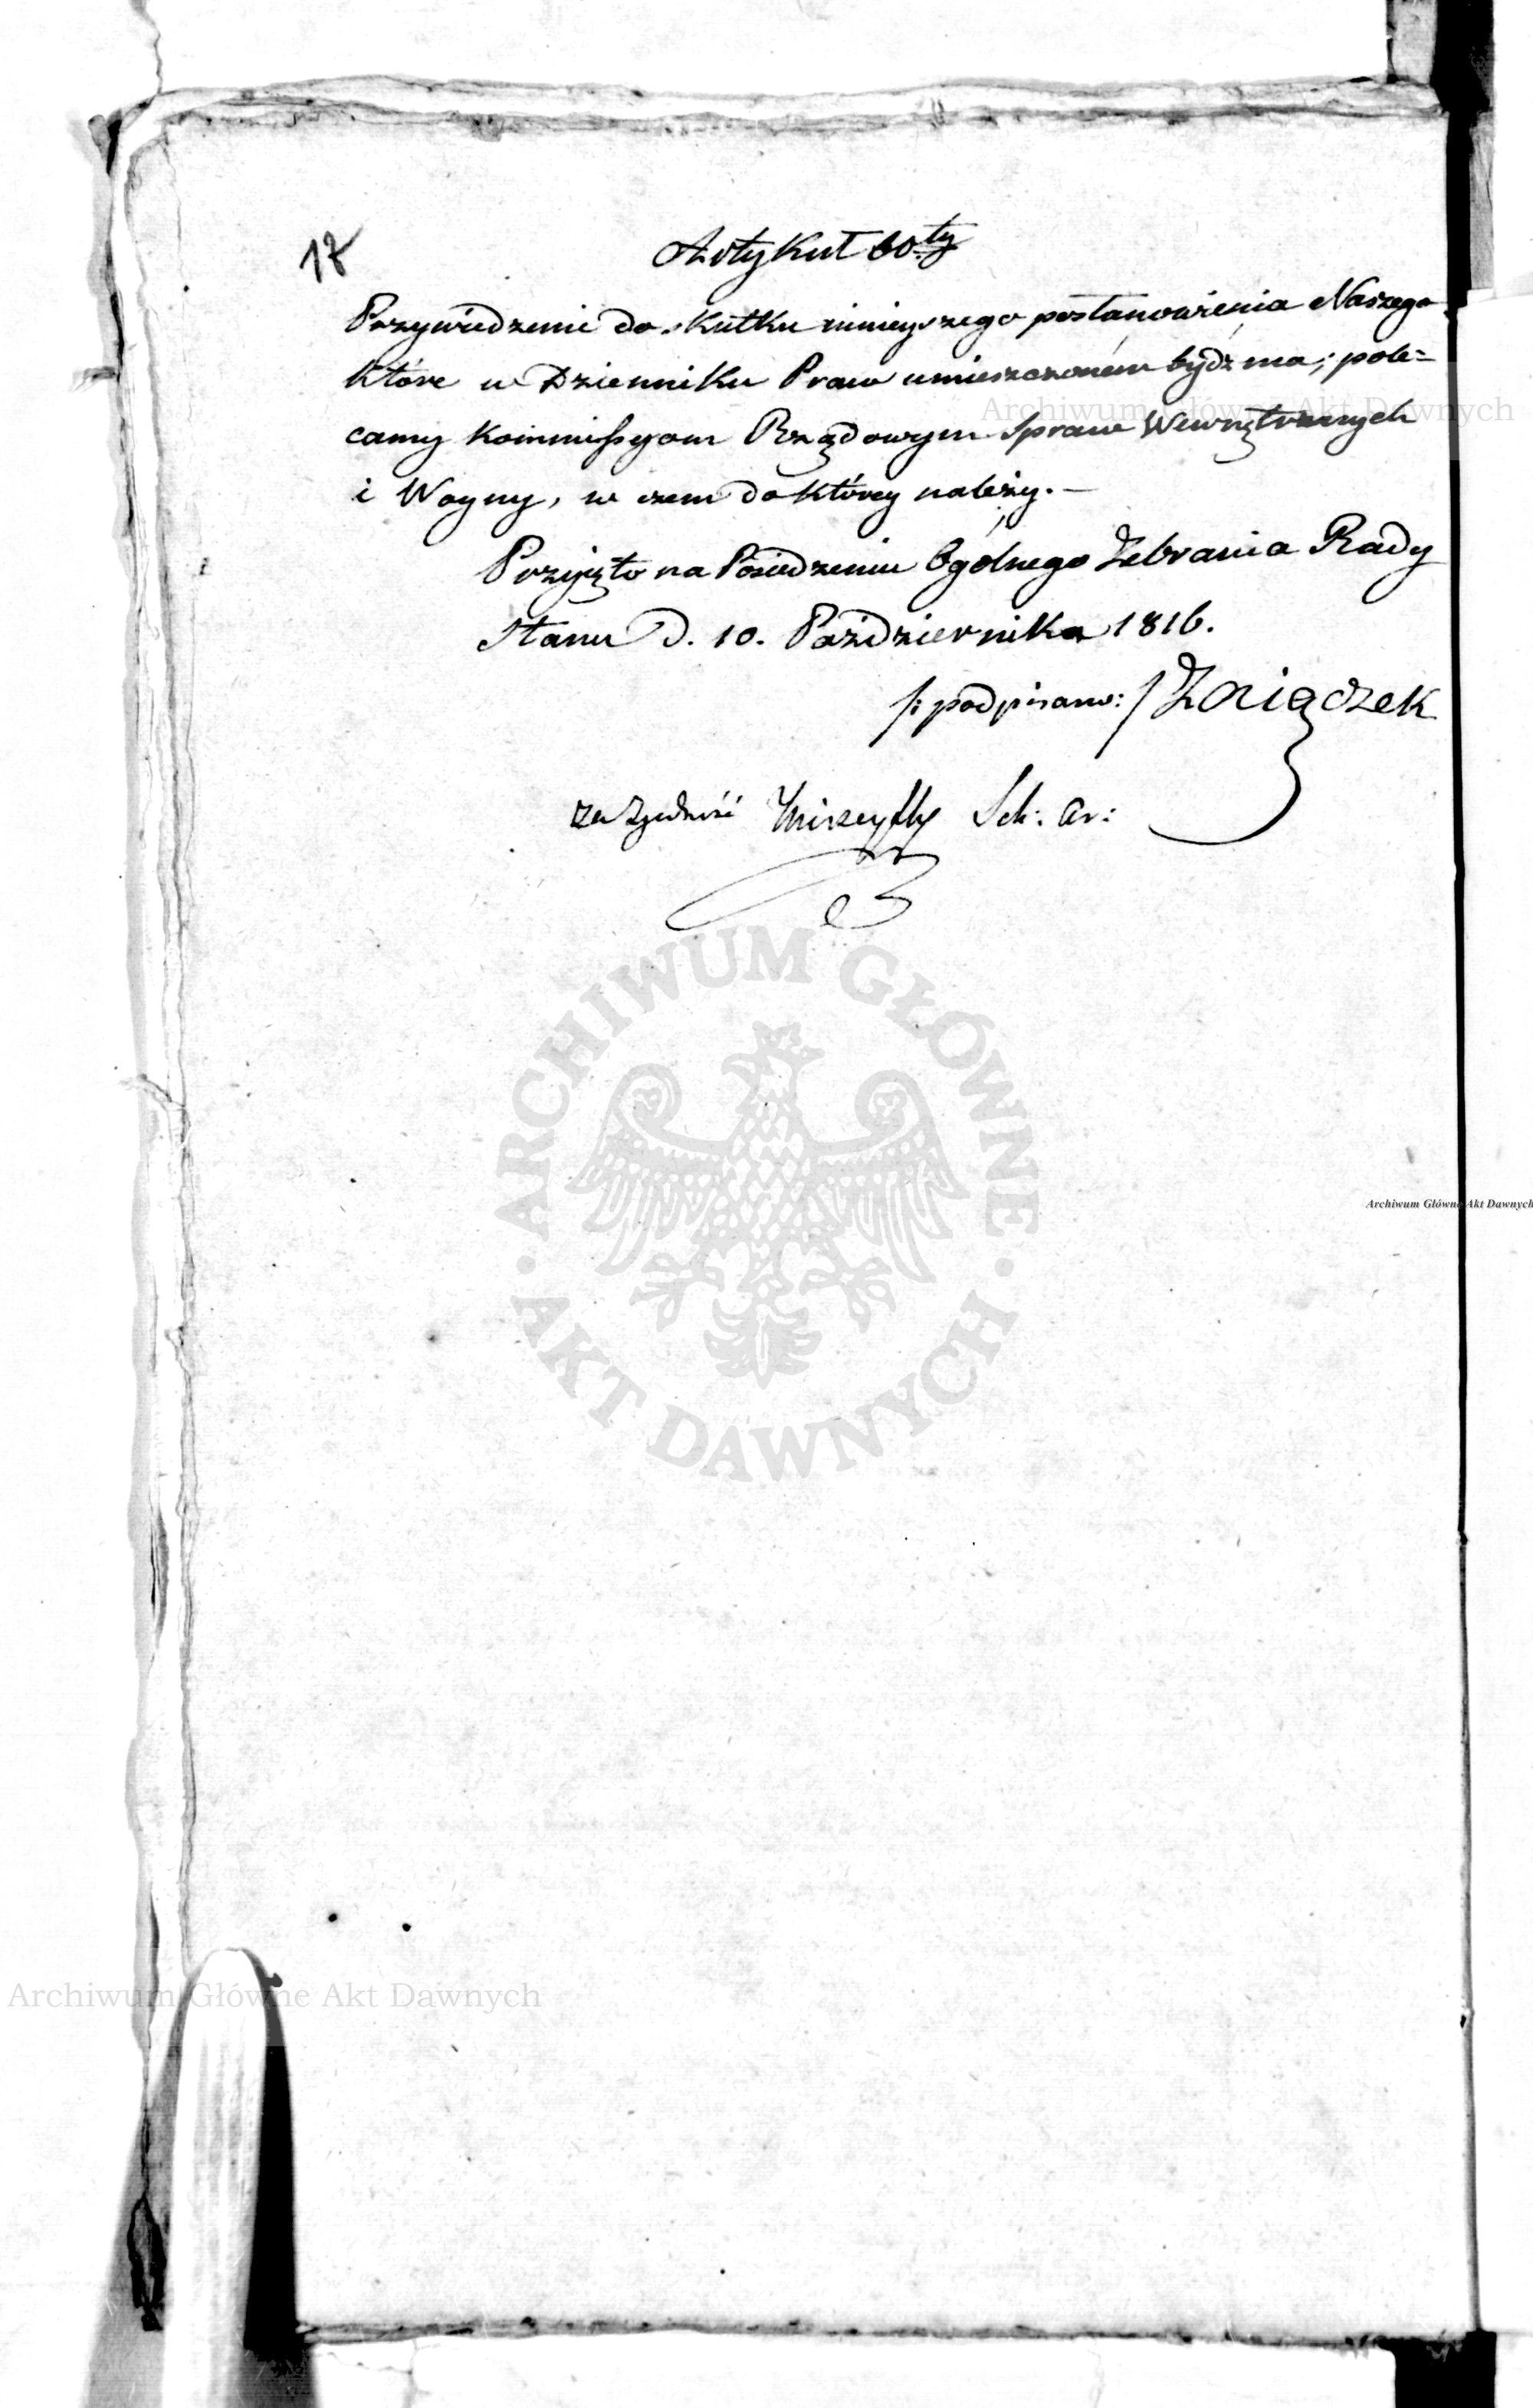 18
Artykuł 60ty
Przywiedzenie do skutku ninieyszego postanowienia Naszego
które w Dzienniku Praw umieszczoném bydź ma, pole=
camy Kommissyom Rządowym Spraw Wewnętrznych
i Woyny, w czem do którey należy. —
Przyięto na Posiedzeniu Ogólnego Zebrania Rady
Stanu D. 10. Października 1816.
/: podpisano: / Zaiączek
za Zgodność Sek: Ar:
ARCHIWUM GŁÓWNE
AKT DAWNYCH
Archiwum Główne Akt Dawnych
Archiwum Główne Akt Dawnych
Archiwum Główne Akt Dawnych